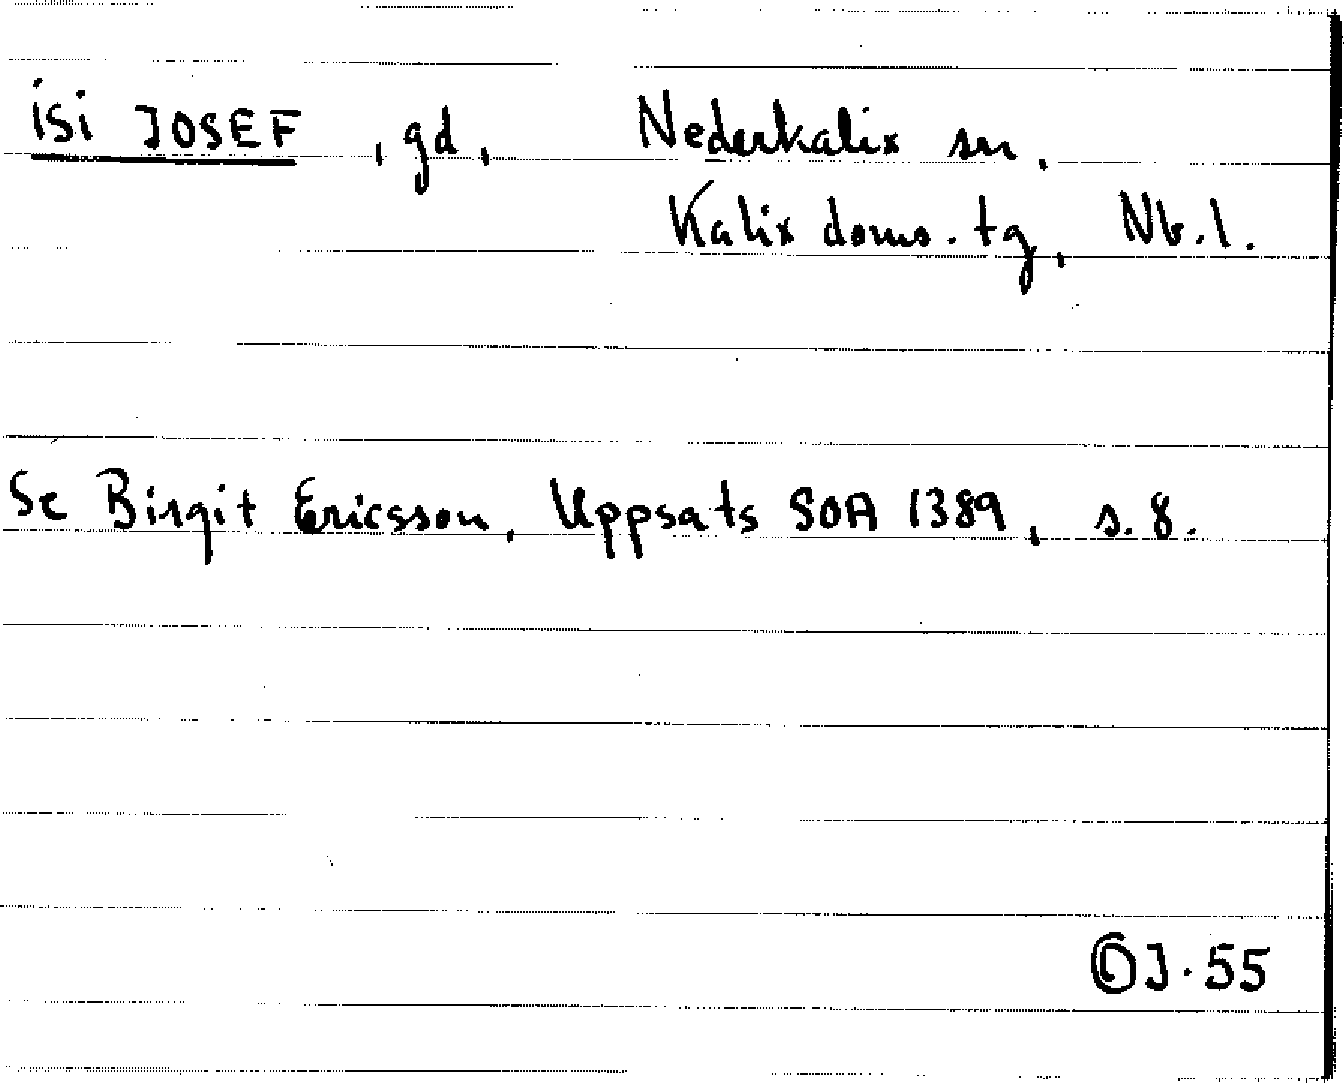 isi JOSEF, gd, Nederkalix sn.
Kalix doms. tg, Nb. l.
Se Birgit Ericsson, Uppsats SOA 1389, s. 8.
OJ. 55